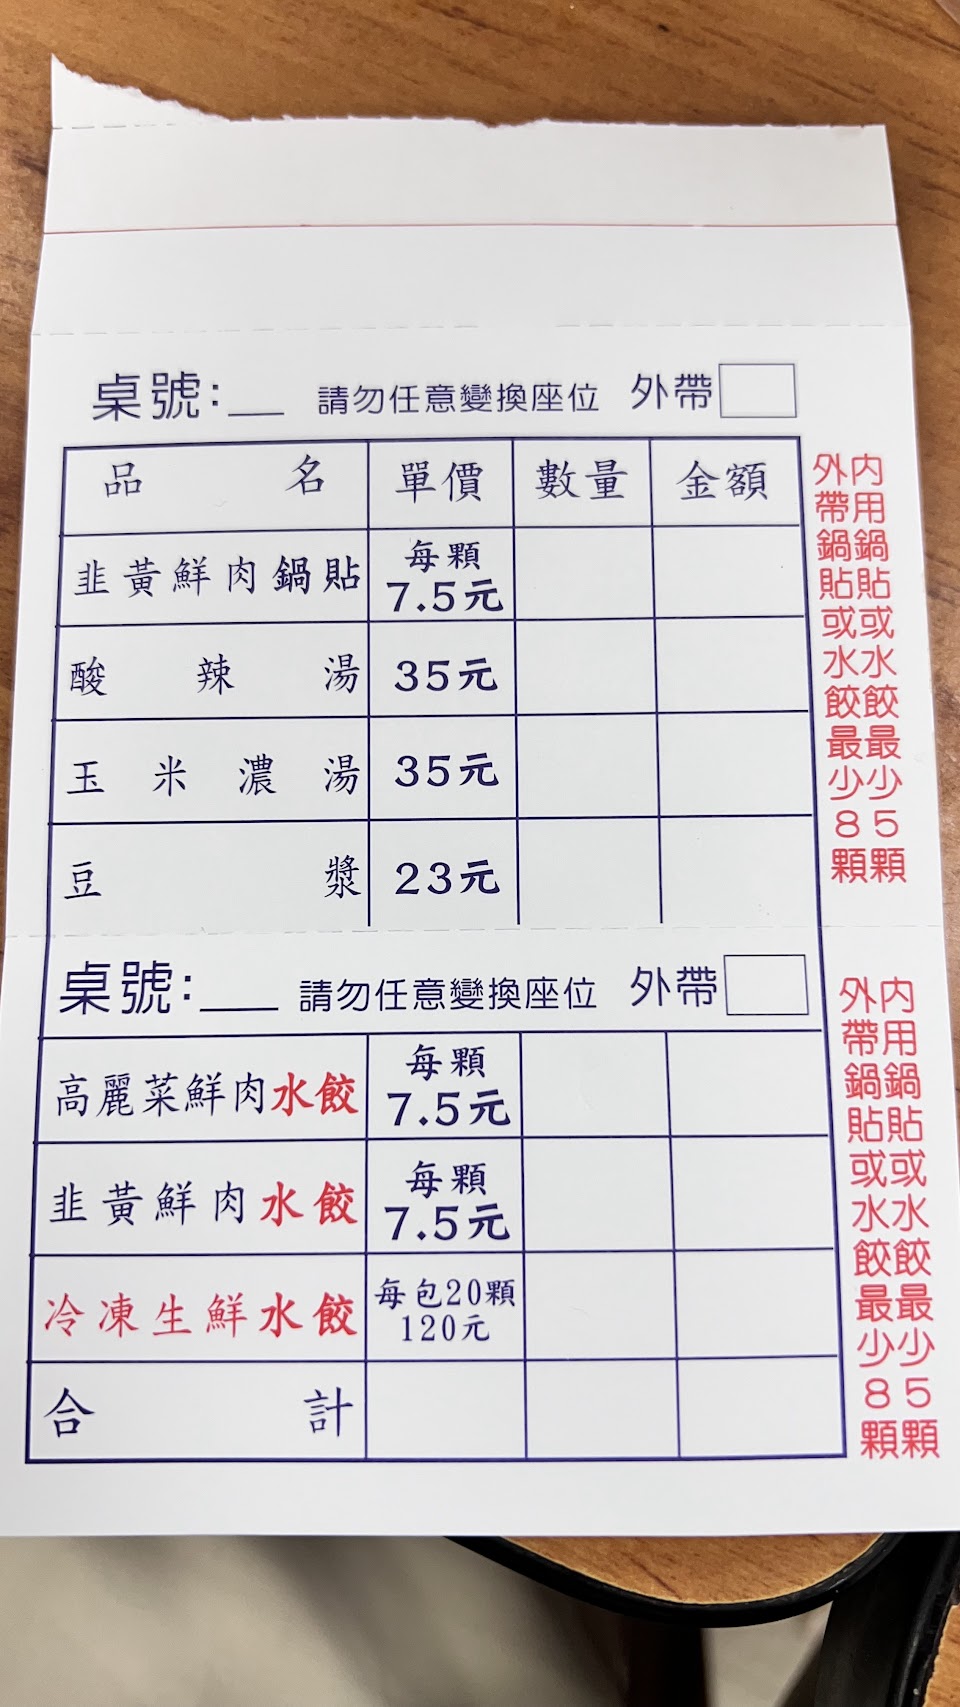 桌號：__ 請勿任意變換座位 外帶
品名 單價 數量 金額
韭黃鮮肉鍋貼 每顆 7.5元
酸辣湯 35元
玉米濃湯 35元
豆漿 23元
內用鍋貼或水餃最少5顆
外帶鍋貼或水餃最少8顆
桌號：__ 請勿任意變換座位 外帶
高麗菜鮮肉水餃 每顆 7.5元
韭黃鮮肉水餃 每顆 7.5元
冷凍生鮮水餃 每包20顆 120元
合計
內用鍋貼或水餃最少5顆
外帶鍋貼或水餃最少8顆